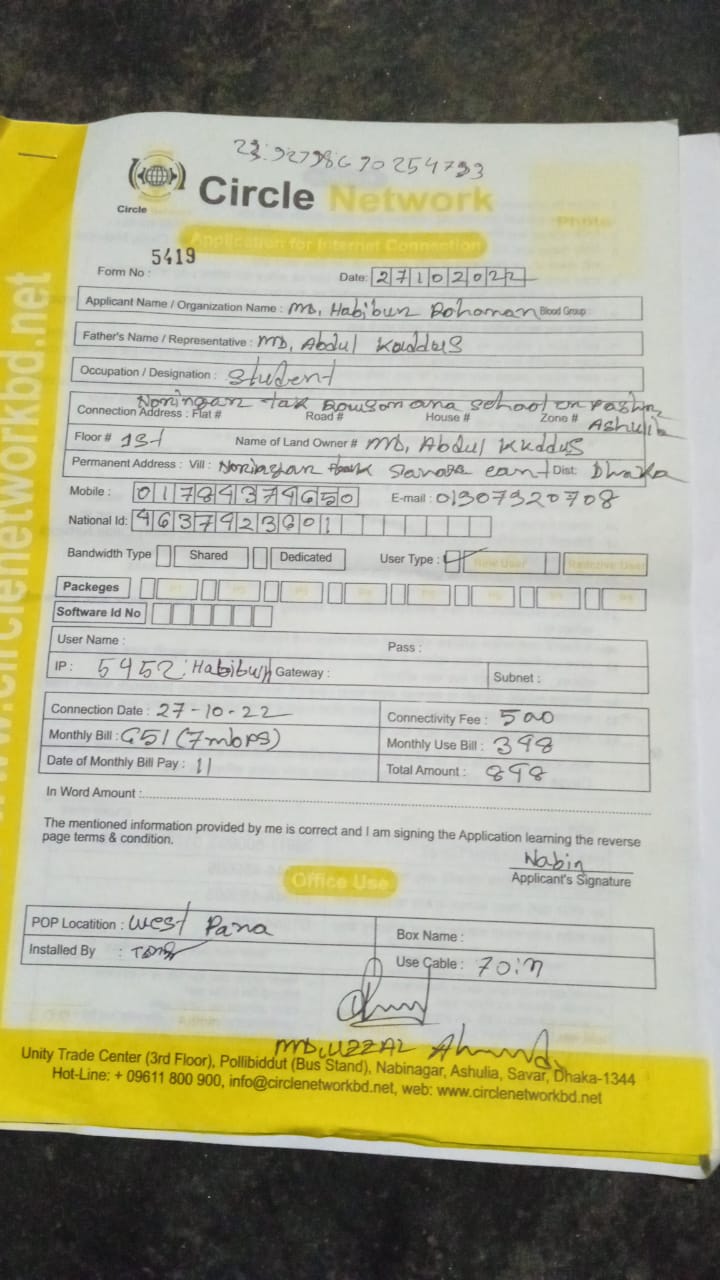 Circle
Circle Network
Photo
Application for Internet Connection
Form No : 5419 Date: 27102022
Applicant Name / Organization Name : MD, Habibur Rohoman Blood Group
Father's Name / Representative : MD, Abdul Kuddus
Occupation / Designation : Student
Connection Address : Flat # Road # House # Zone # Ashulia
school
Floor # 1st Name of Land Owner # MD, Abdul Kuddus
Permanent Address : Vill : Dist: Dhaka
Mobile : 01784374650 E-mail : 01307320708
National Id: 4637423601
Bandwidth Type Shared Dedicated User Type : New User
Packeges
Software Id No
User Name : Pass :
IP : 5452:Habibur Gateway : Subnet :
Connection Date : 27-10-22 Connectivity Fee : 500
Monthly Bill : (7mbps) Monthly Use Bill : 398
Date of Monthly Bill Pay : 11 Total Amount : 898
In Word Amount :
The mentioned information provided by me is correct and I am signing the Application learning the reverse
page terms & condition.
Nabin
Applicant's Signature
Office Use
POP Locatition : West Para Box Name :
Installed By : Use Cable : 70:m
MD, UZZAL Ahmed
Unity Trade Center (3rd Floor), Pollibiddut (Bus Stand), Nabinagar, Ashulia, Savar, Dhaka-1344
Hot-Line: + 09611 800 900, info@circlenetworkbd.net, web: www.circlenetworkbd.net
www.circlenetworkbd.net